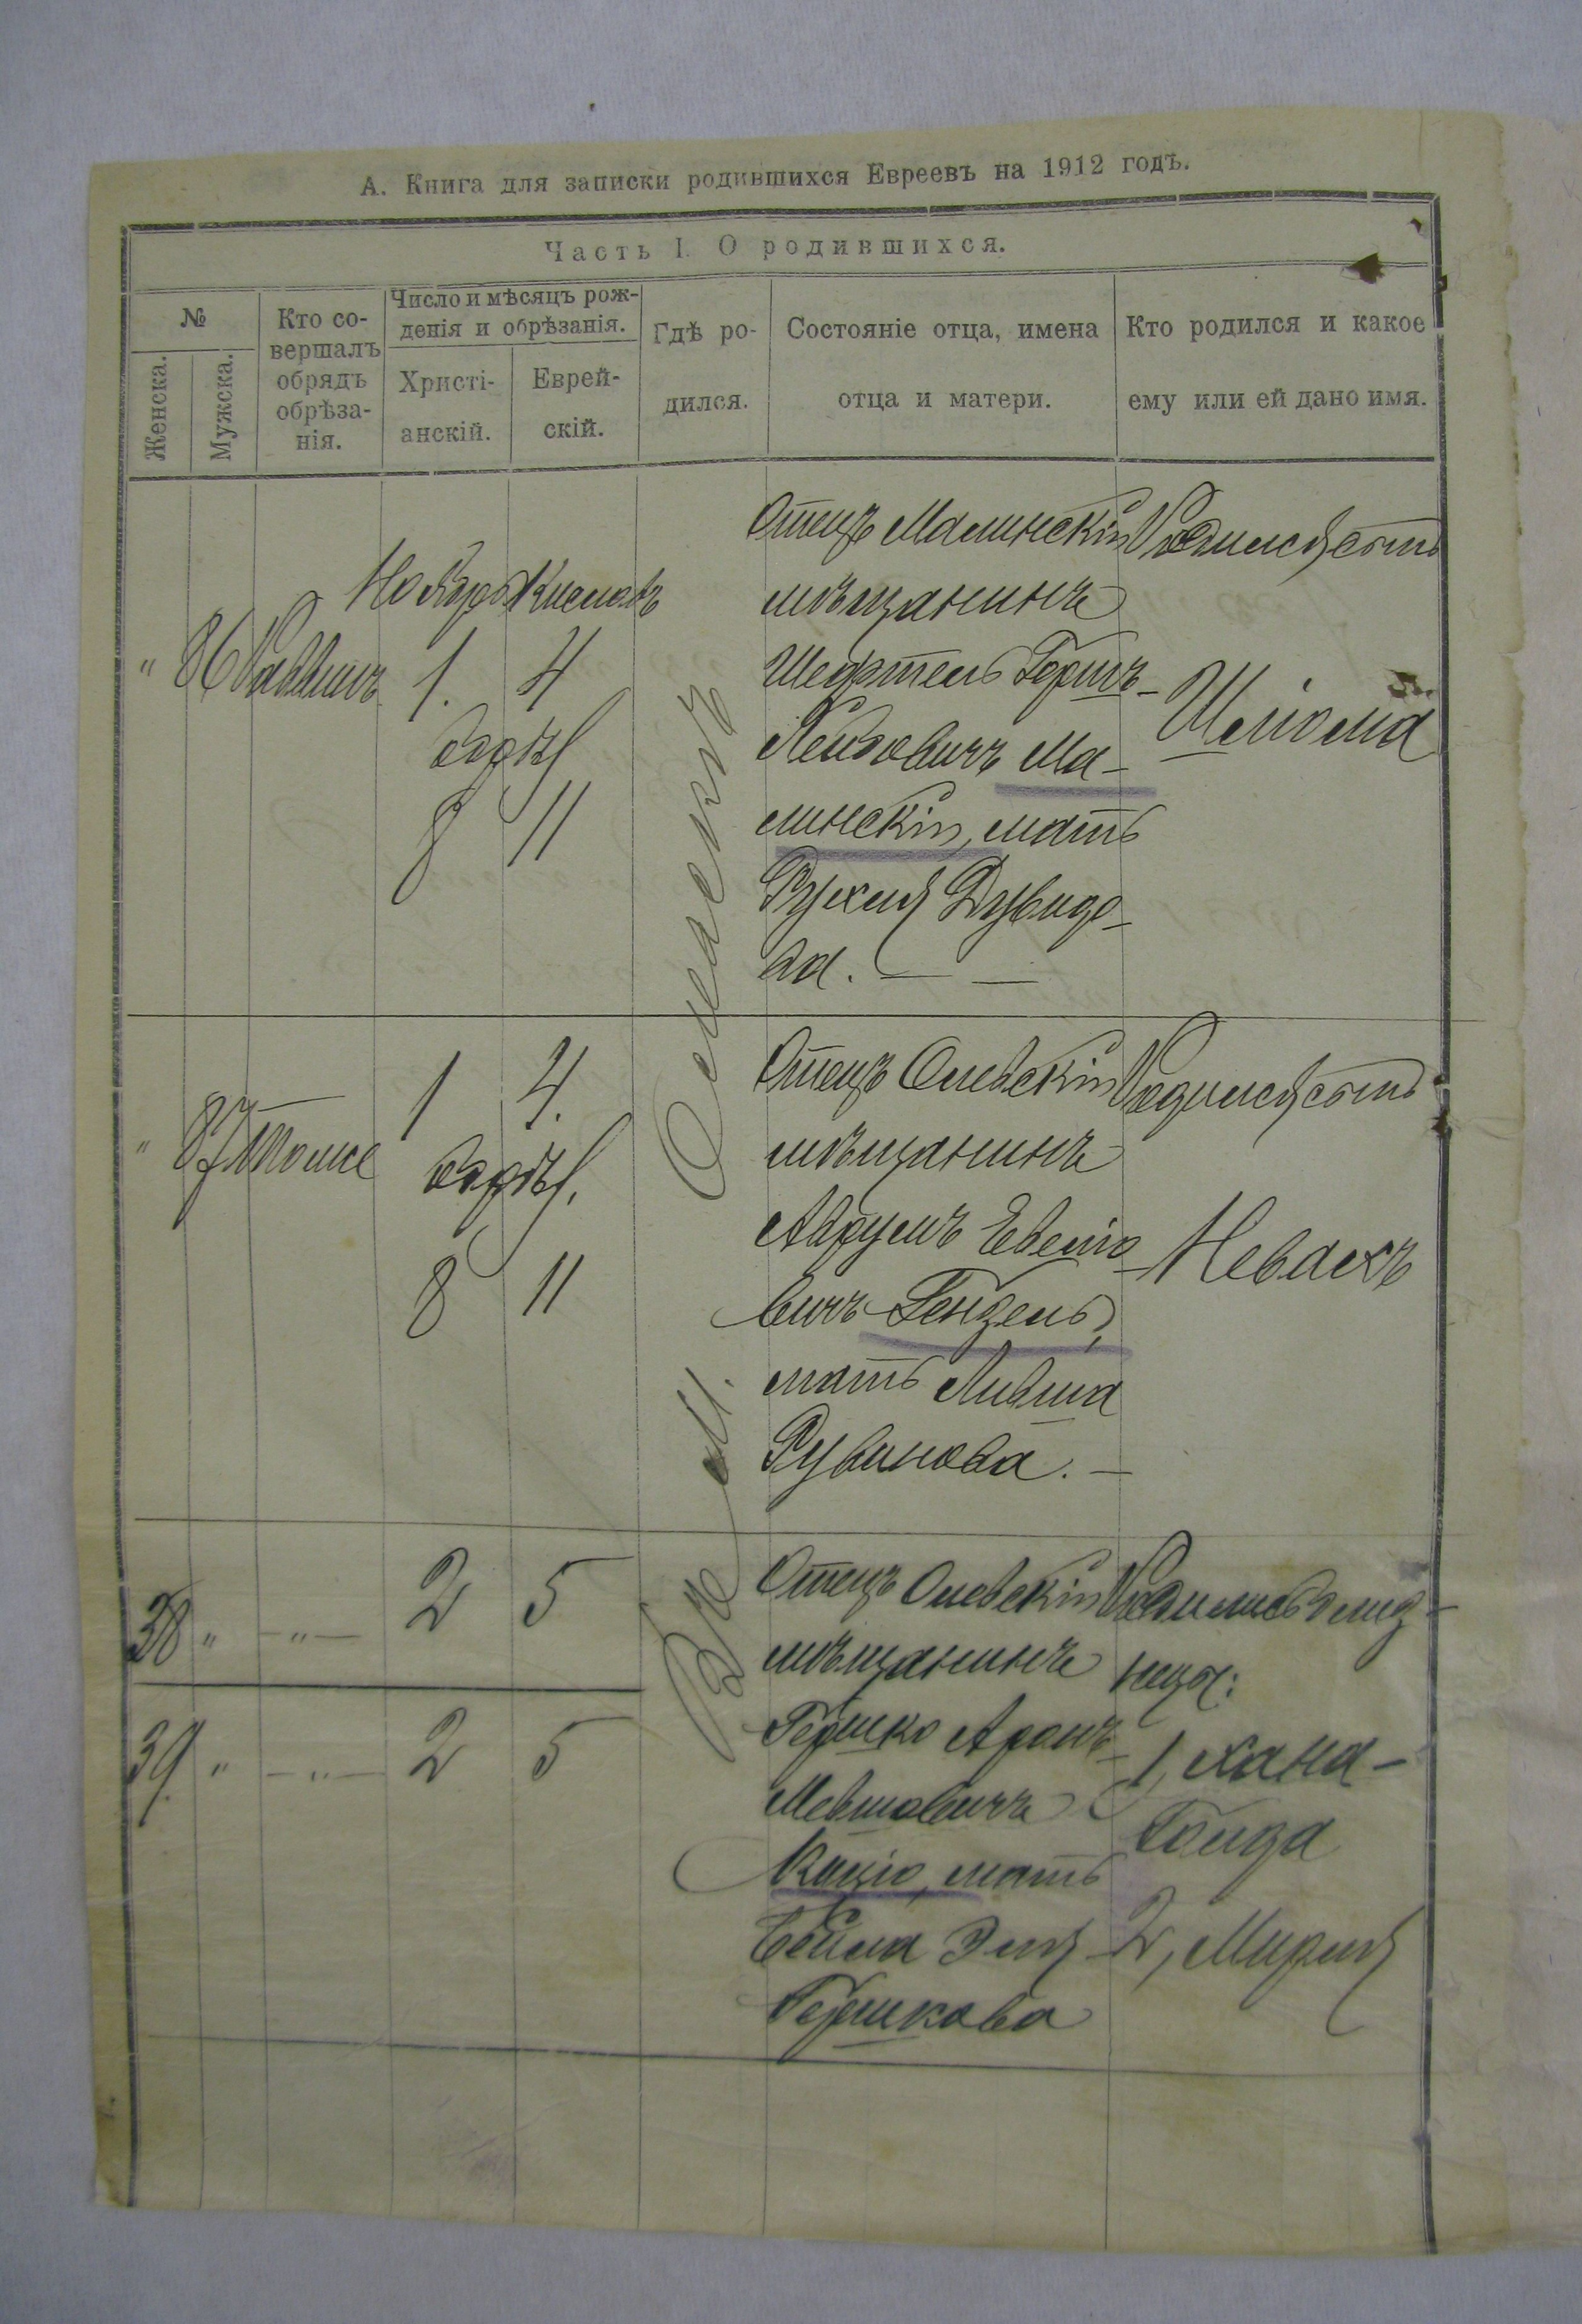 А. Книга для записки родившихся Евреевъ на 1912 годъ.
Часть I. О родившихся.
№
Женска.
Мужска.
Кто со-
вершалъ
обрядъ
обрѣза-
нія.
Число и мѣсяцъ рож-
денія и обрѣзанія.
Христі-
анскій.
Еврей-
скій.
Гдѣ ро-
дился.
Состояніе отца, имена
отца и матери.
Кто родился и какое
ему или ей дано имя.
Ноября Кислевъ
" 86 Раввинъ 1. 4
8 11
Въ м. Олевскѣ
Отецъ Малинскій
мѣщанинъ
Шефтель Горшъ-
Лейбовичъ Ма-
линскій, мать
Рухля Дувидо-
ва.
Родился сынъ
Шліома
" 87 Тотже 1 4.
8 11
Отецъ Олевскій
мѣщанинъ
Аврумъ Евеліо
вичъ Гендель,
мать Лившa
Рувинова.
Родился сынъ
Невахъ
38 " — " — 2 5
39. " — " — 2 5
Отецъ Олевскій
мѣщанинъ
Гершко Аронъ-
Мевшовичъ
мать
Бейла Эля
Гершкова
Родились близ-
нецы:
1, Хана-
Голда
2, Мирля